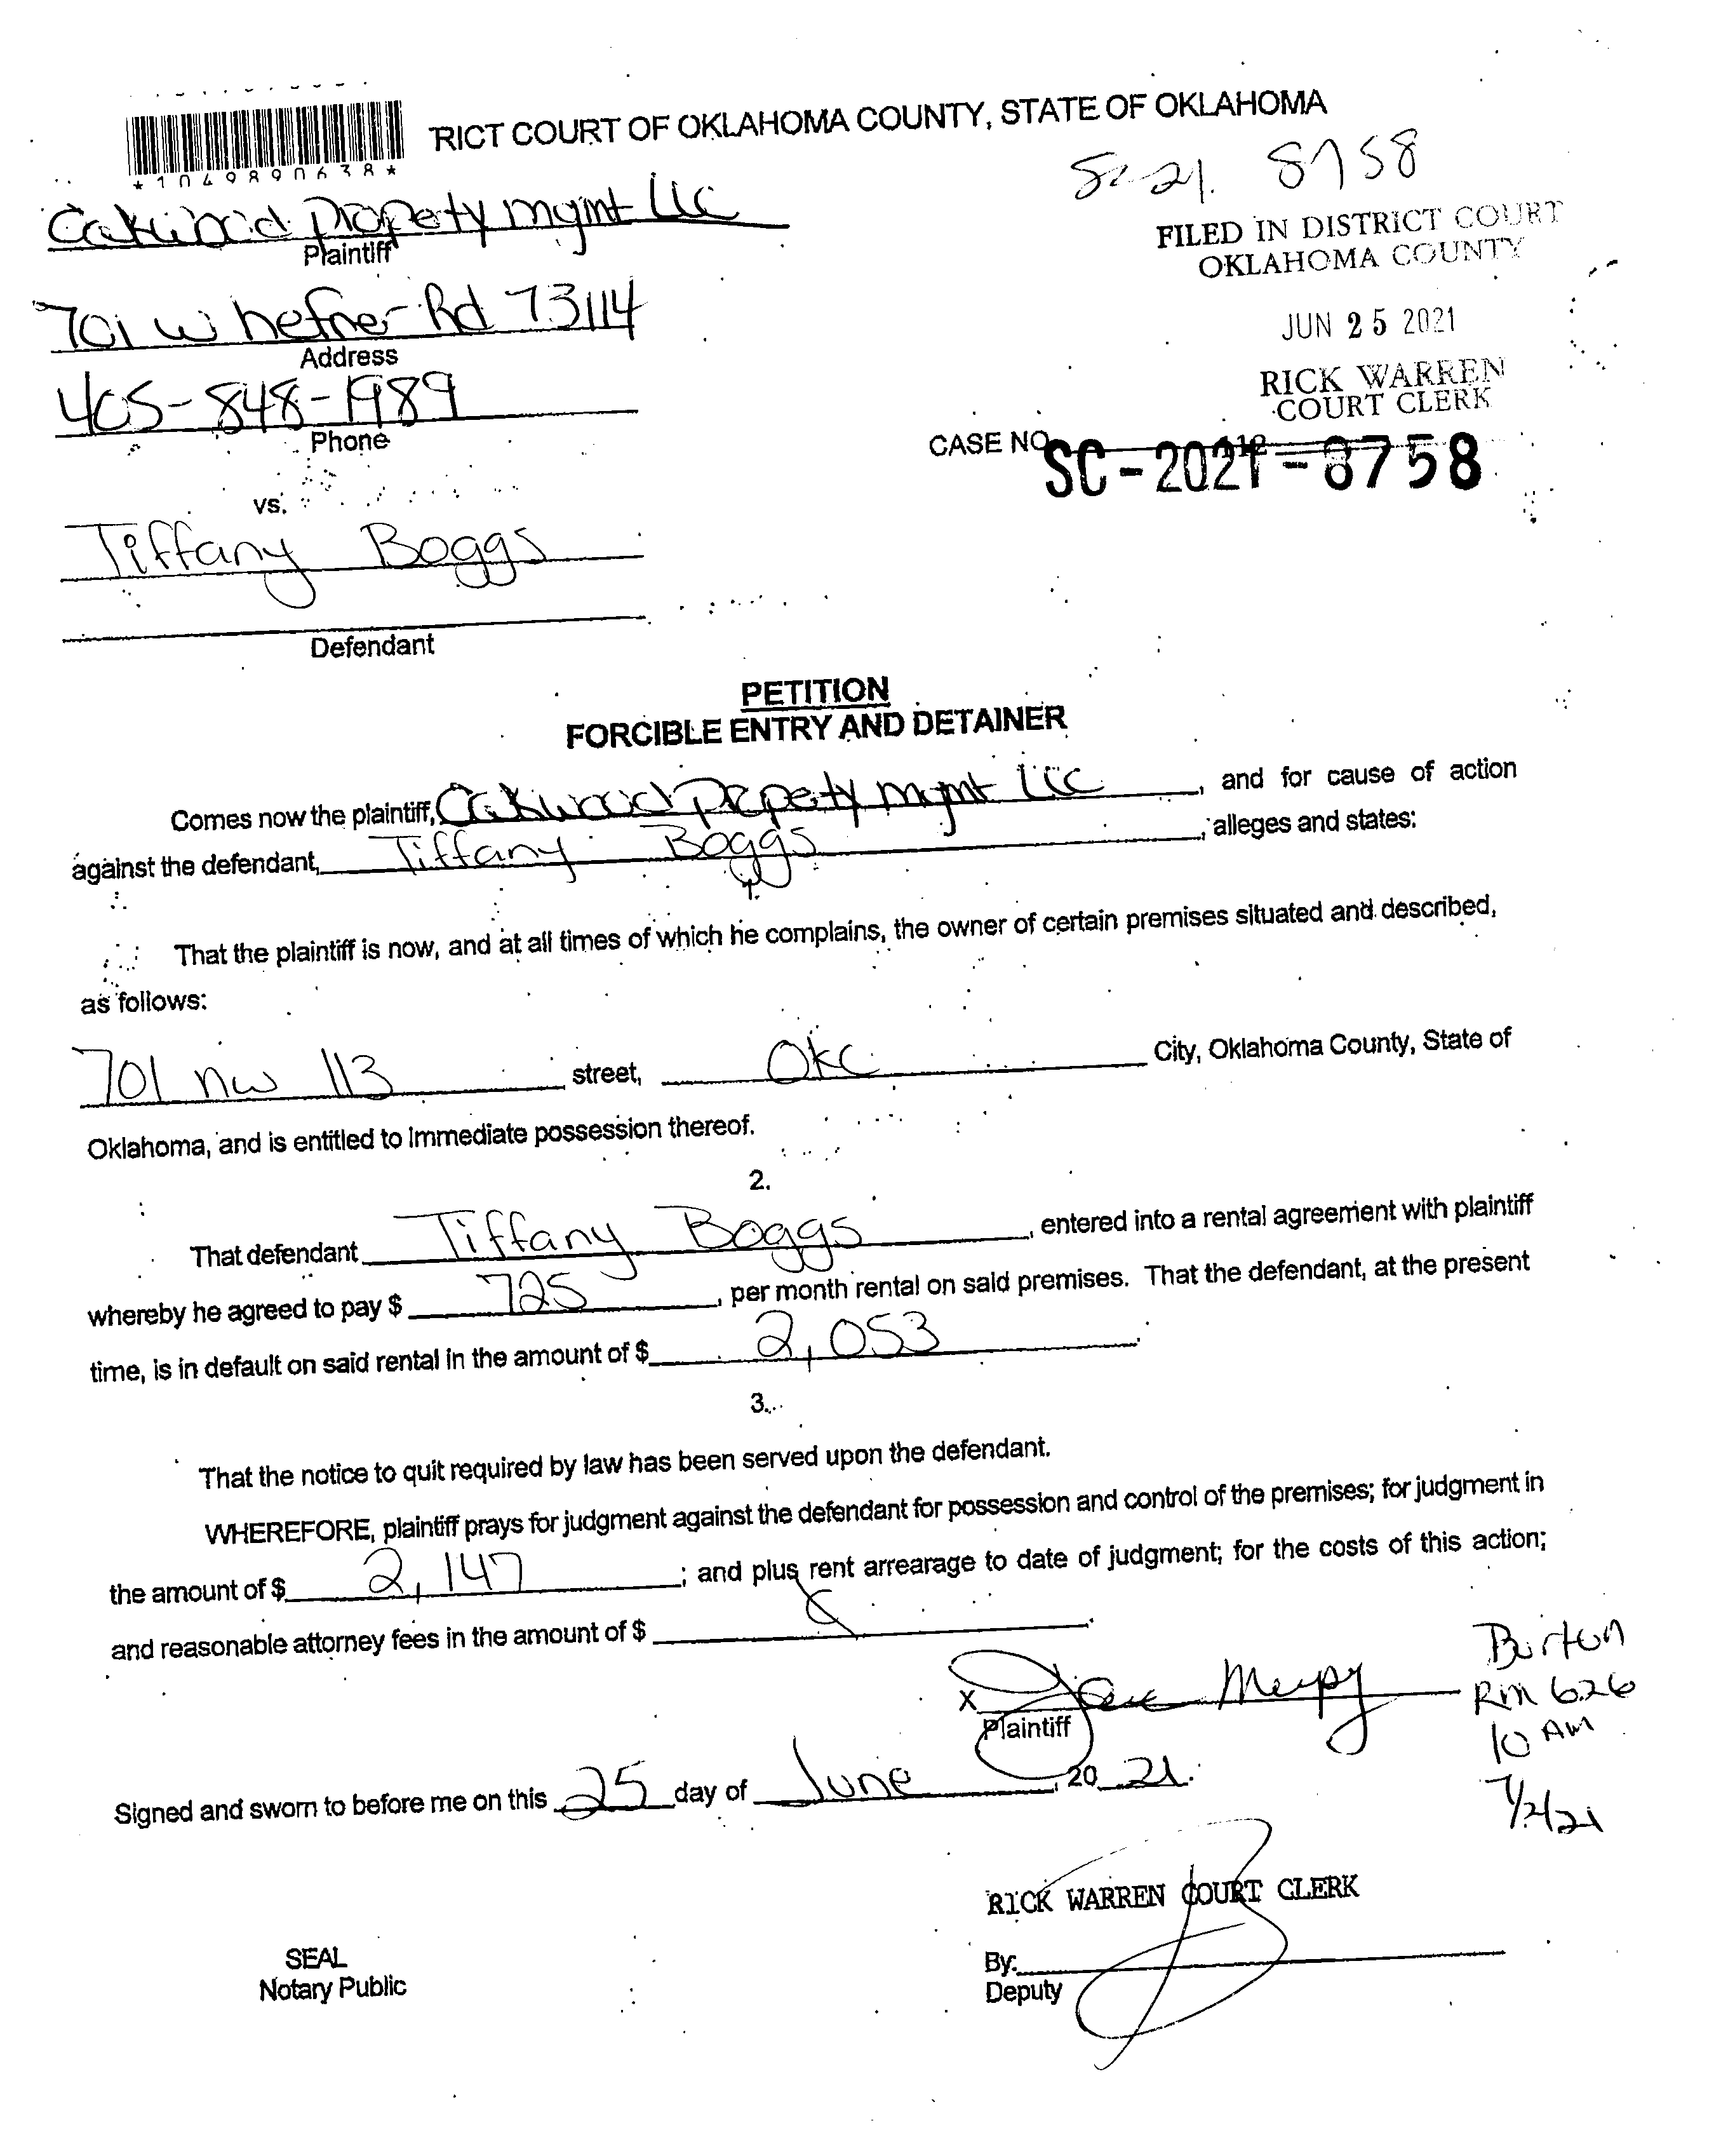 RICT COURT OF OKLAHOMA COUNTY, STATE OF OKLAHOMA
*1049890638*
SC-21. 8758
Oakwood Propety mgmt llc
Plaintiff
FILED IN DISTRICT COURT
OKLAHOMA COUNTY
701 W hefner Rd 73114
Address
JUN 25 2021
405-848-1989
Phone
RICK WARREN
COURT CLERK
CASE NO.
SC-2021-8758
vs.
Tiffany Boggs
Defendant
PETITION
FORCIBLE ENTRY AND DETAINER
Comes now the plaintiff, Oakwood Propety mgmt llc, and for cause of action
against the defendant, Tiffany Boggs, alleges and states:
1.
That the plaintiff is now, and at all times of which he complains, the owner of certain premises situated and described,
as follows:
701 nw 113 street, OKC City, Oklahoma County, State of
Oklahoma, and is entitled to immediate possession thereof.
2.
That defendant Tiffany Boggs, entered into a rental agreement with plaintiff
whereby he agreed to pay $ 725, per month rental on said premises. That the defendant, at the present
time, is in default on said rental in the amount of $ 2,053.
3.
That the notice to quit required by law has been served upon the defendant.
WHEREFORE, plaintiff prays for judgment against the defendant for possession and control of the premises; for judgment in
the amount of $ 2,147; and plus rent arrearage to date of judgment; for the costs of this action;
and reasonable attorney fees in the amount of $
X
Plaintiff
Burton
Rm 626
10 AM
7/2/21
Signed and sworn to before me on this 25 day of June, 20 21.
RICK WARREN COURT CLERK
SEAL
Notary Public
By:
Deputy